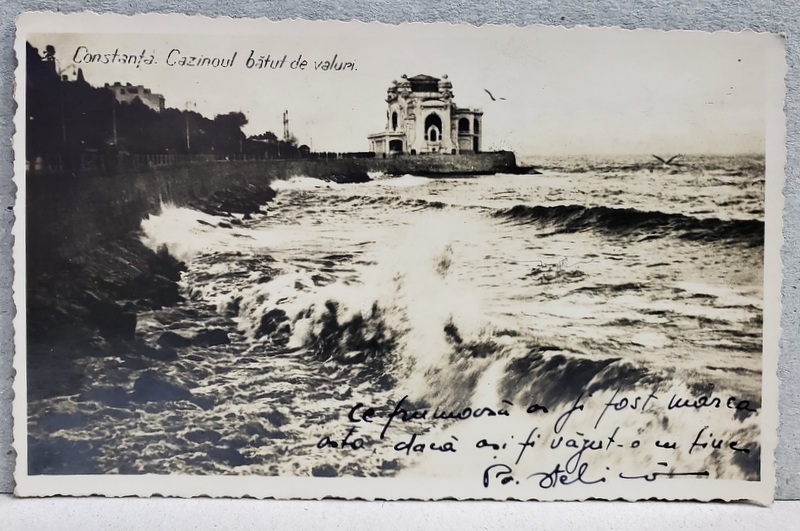 Constanța. Cazinoul bătut de valuri.
Ce frumoasă ar fi fost marea
asta, dacă ași fi văzut-o cu tine